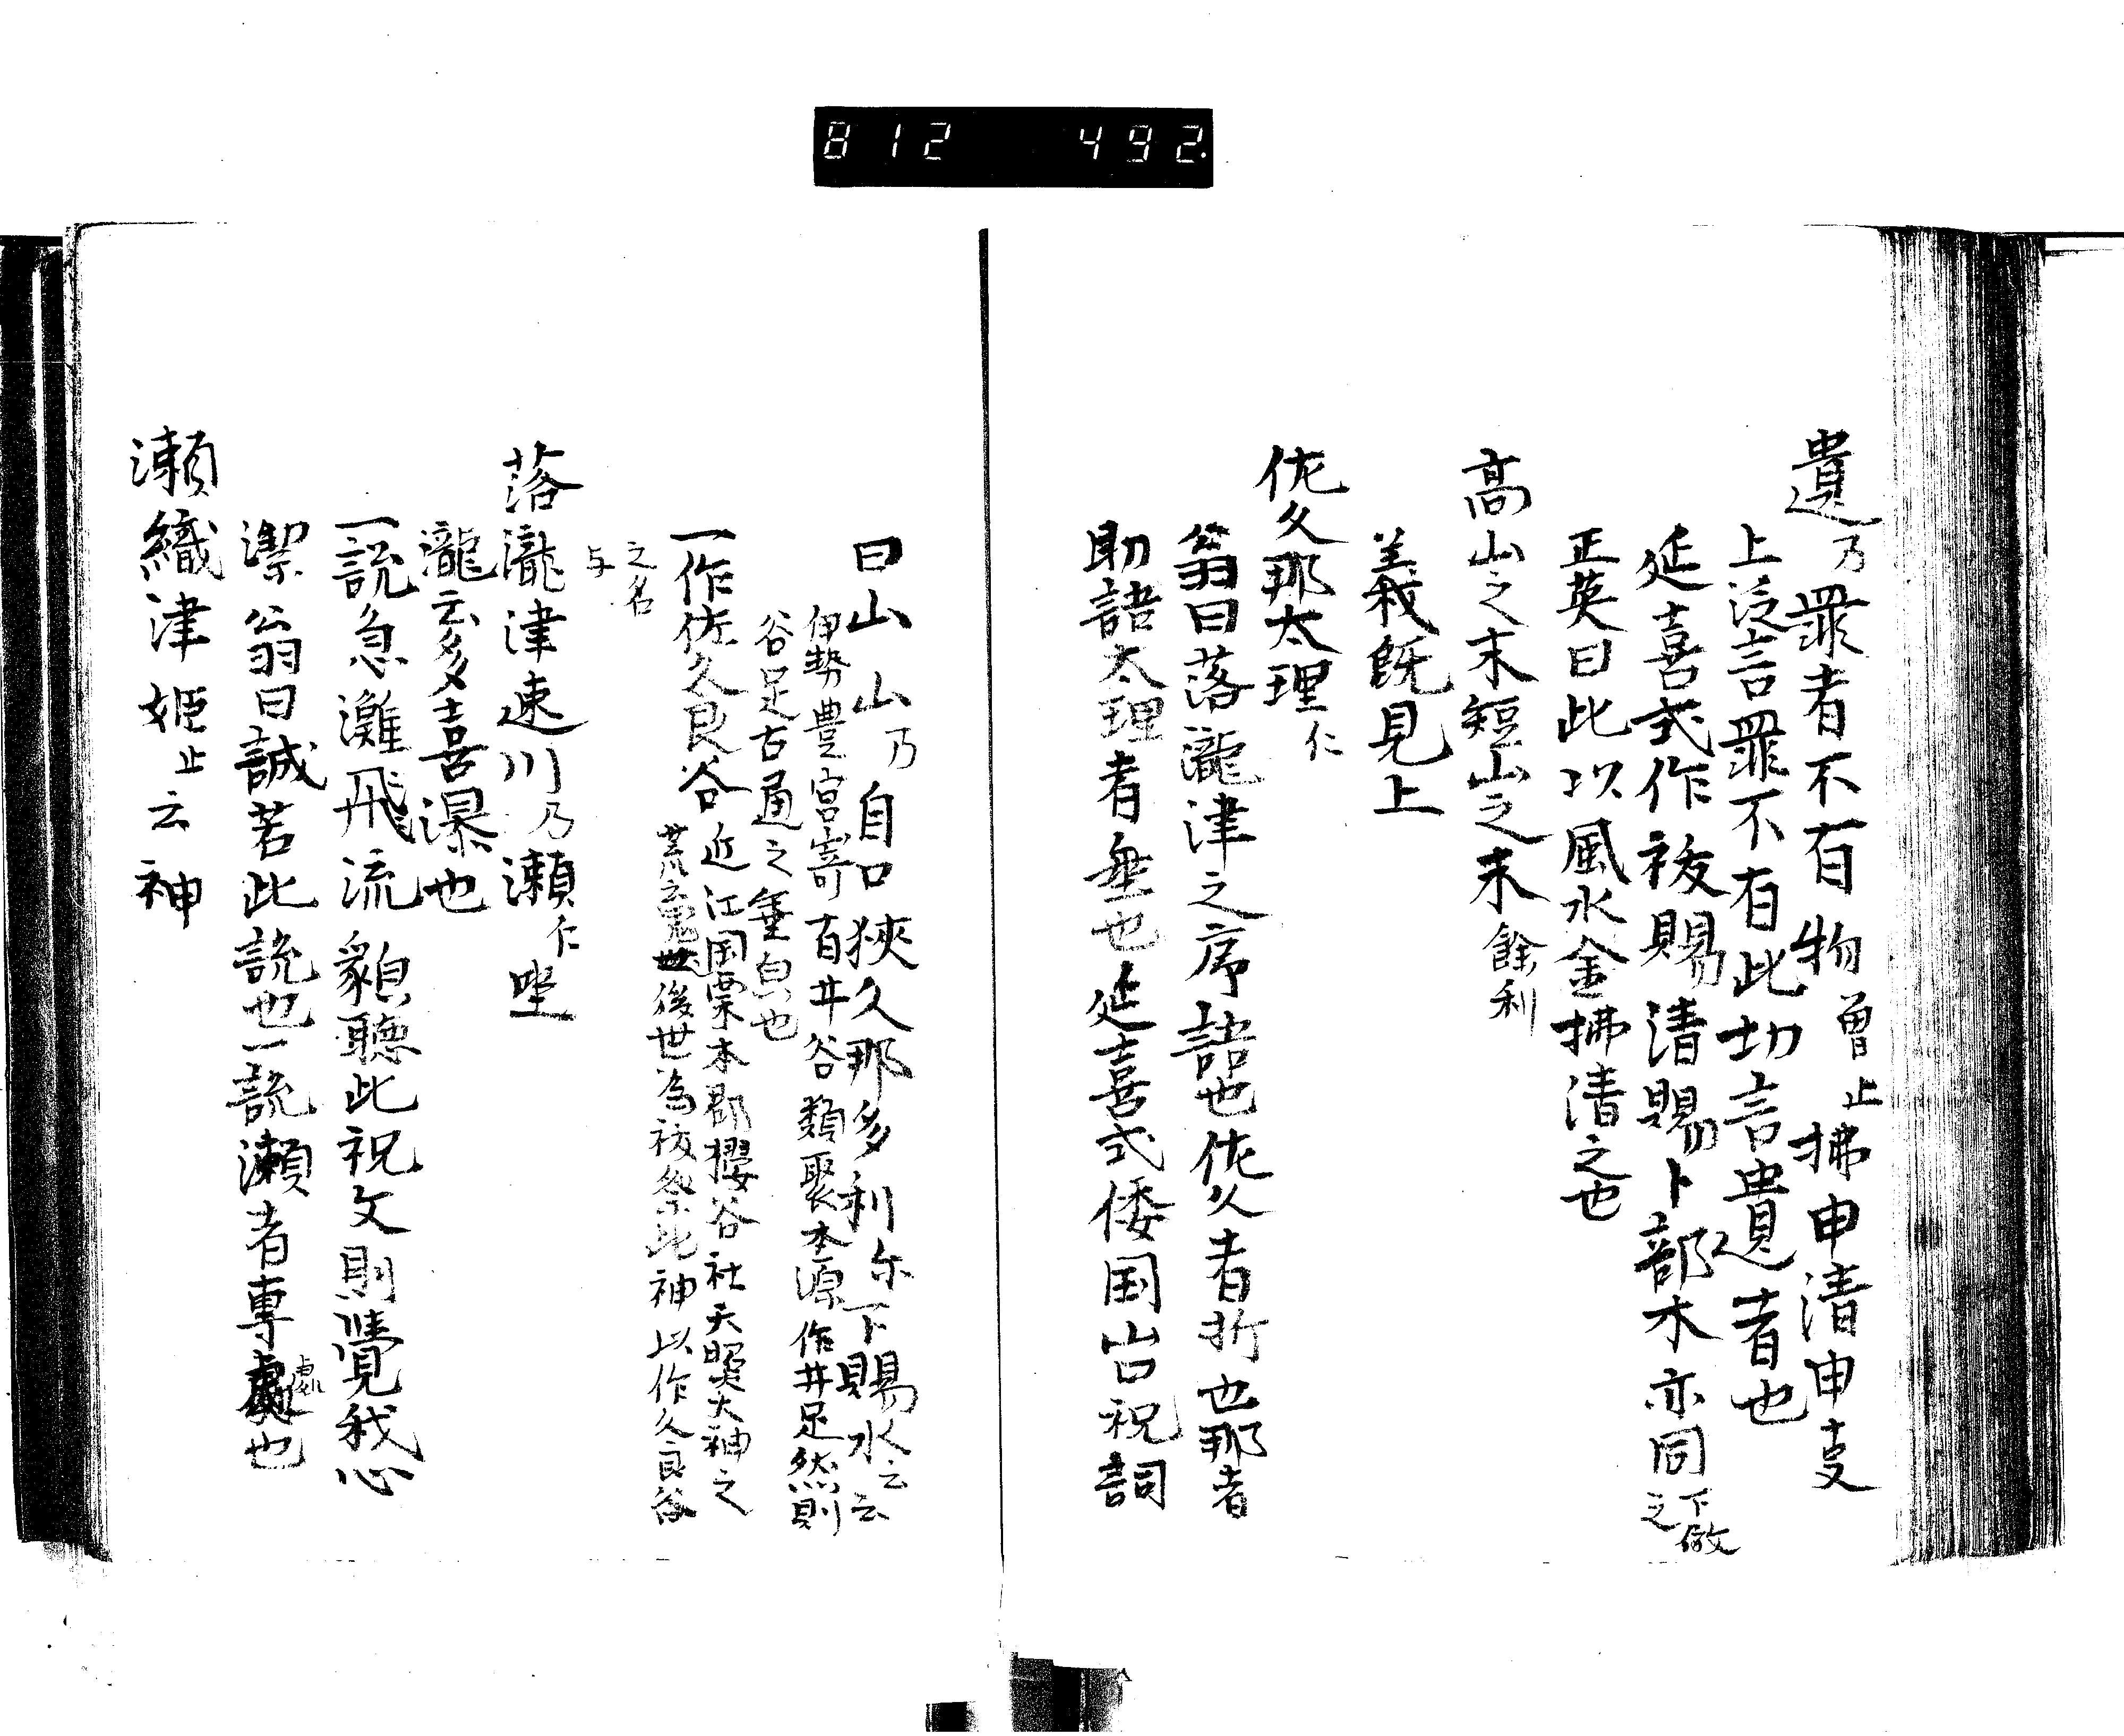 812 492.
遺乃罪者不有物曾止拂申清申支
上泛言罪不有此切言遺者也
延喜式作祓賜清賜卜部木亦同下倣之
正英曰此以風水金拂清之也
高山之末短山之末餘利
義既見上
佐久那太理仁
翁曰落瀧津之序語也佐久者折也那者
助語太理者垂也延喜式倭国山口祝詞
曰山山乃自口狹久那多利尓下賜水云云
伊勢豊宮寄百井谷類聚本源作井足然則
谷足古通之垂皃也
一作佐久良谷近江国栗本郡櫻谷社天照大神之
荒魂後世為祓祭此神以作久良谷
之名
与
落瀧津速川乃瀬仁坐
瀧云多喜瀑也
一説急灘飛流貌聽此祝文則覺我心
潔翁曰誠若此説也一説瀬者専處也
瀬織津姫止云神